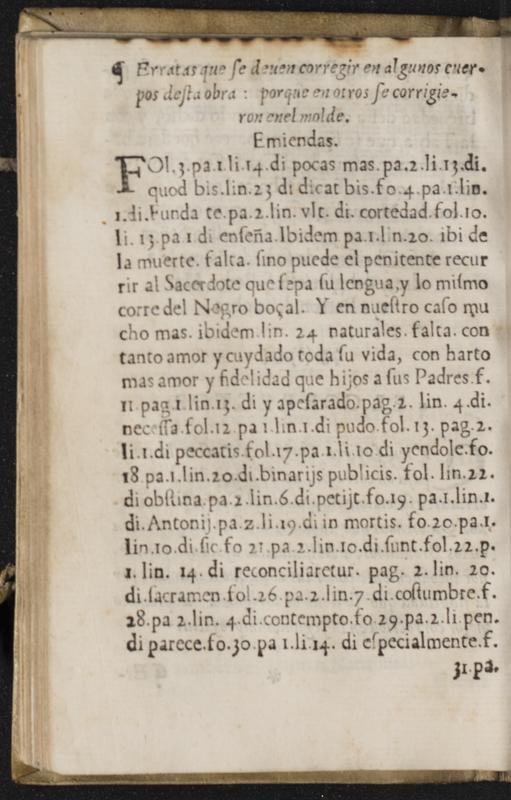 ¶ Erratas que se deuen corregir en algunos cuer-
pos desta obra : porque en otros se corrigie-
ron enel molde.
Emiendas.
FOl.3.pa.1.li.14.di pocas mas.pa.2.li.13.di.
quod bis.lin.23 di dicat bis.fo.4.pa.1.lin.
1.di.Funda te.pa.2.lin.vlt. di. cortedad.fol.10.
li. 13.pa 1 di enseña.Ibidem pa.1.lin.20. ibi de
la muerte. falta. sino puede el penitente recur
rir al Sacerdote que sepa su lengua,y lo mismo
corre del Negro boçal. Y en nuestro caso mu
cho mas. ibidem.lin. 24 naturales. falta. con
tanto amor y cuydado toda su vida, con harto
mas amor y fidelidad que hijos a sus Padres.f.
11.pag.1.lin.13. di y apesarado.pag.2. lin. 4.di.
necessa.fol.12.pa 1.lin.1.di pudo.fol. 13. pag.2.
li.1.di peccatis.fol.17.pa.1.li.10 di yendole.fo.
18.pa.1.lin.20.di.binarijs publicis. fol. lin.22.
di obstina.pa.2.lin.6.di.petijt.fo.19. pa.1.lin.1.
di.Antonij.pa.2.li.19.di in mortis. fo.20.pa.1.
lin.10.di.sic.fo 21.pa.2.lin.10.di.sunt.fol.22.p.
1. lin. 14. di reconciliaretur. pag. 2. lin. 20.
di.sacramen.fol.26.pa.2.lin.7.di.costumbre.f.
28.pa 2.lin. 4.di.contempto.fo.29.pa.2.li.pen.
di parece.fo.30.pa 1.li.14. di especialmente.f.
31.pa.